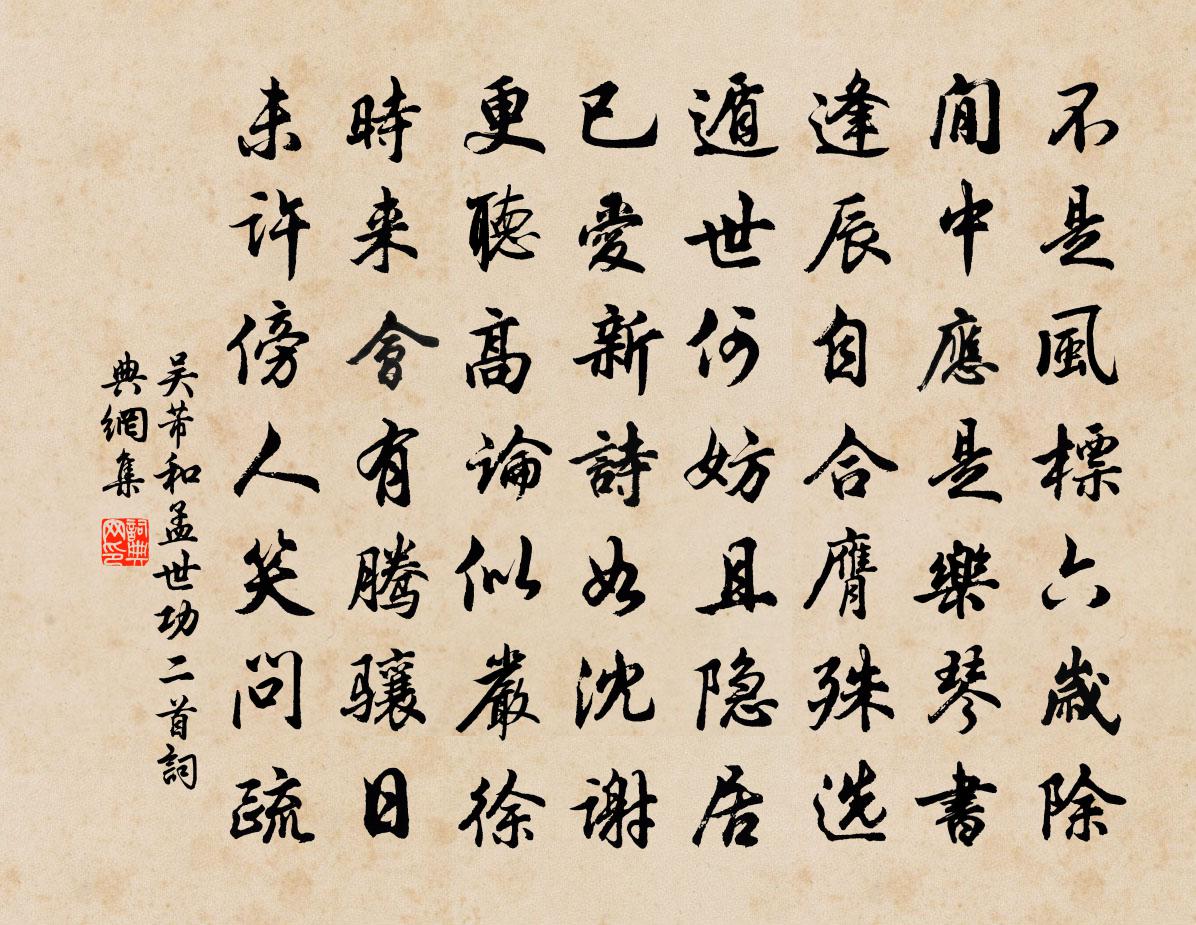 不是風標六歲除
閒中應是樂琴書
逢辰自合膺殊选
遁世何妨且隐居
已愛新詩如沈谢
更聽高論似嚴徐
時来會有騰驤日
未許傍人笑問疏
吴芾和孟世功二首詞
典網集
詞典网印